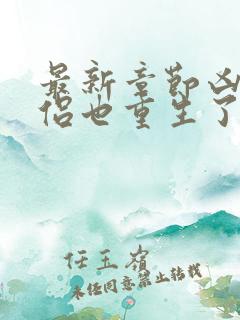 最新章节凶
侣也重生了
任玉岭
未经同意禁止转载